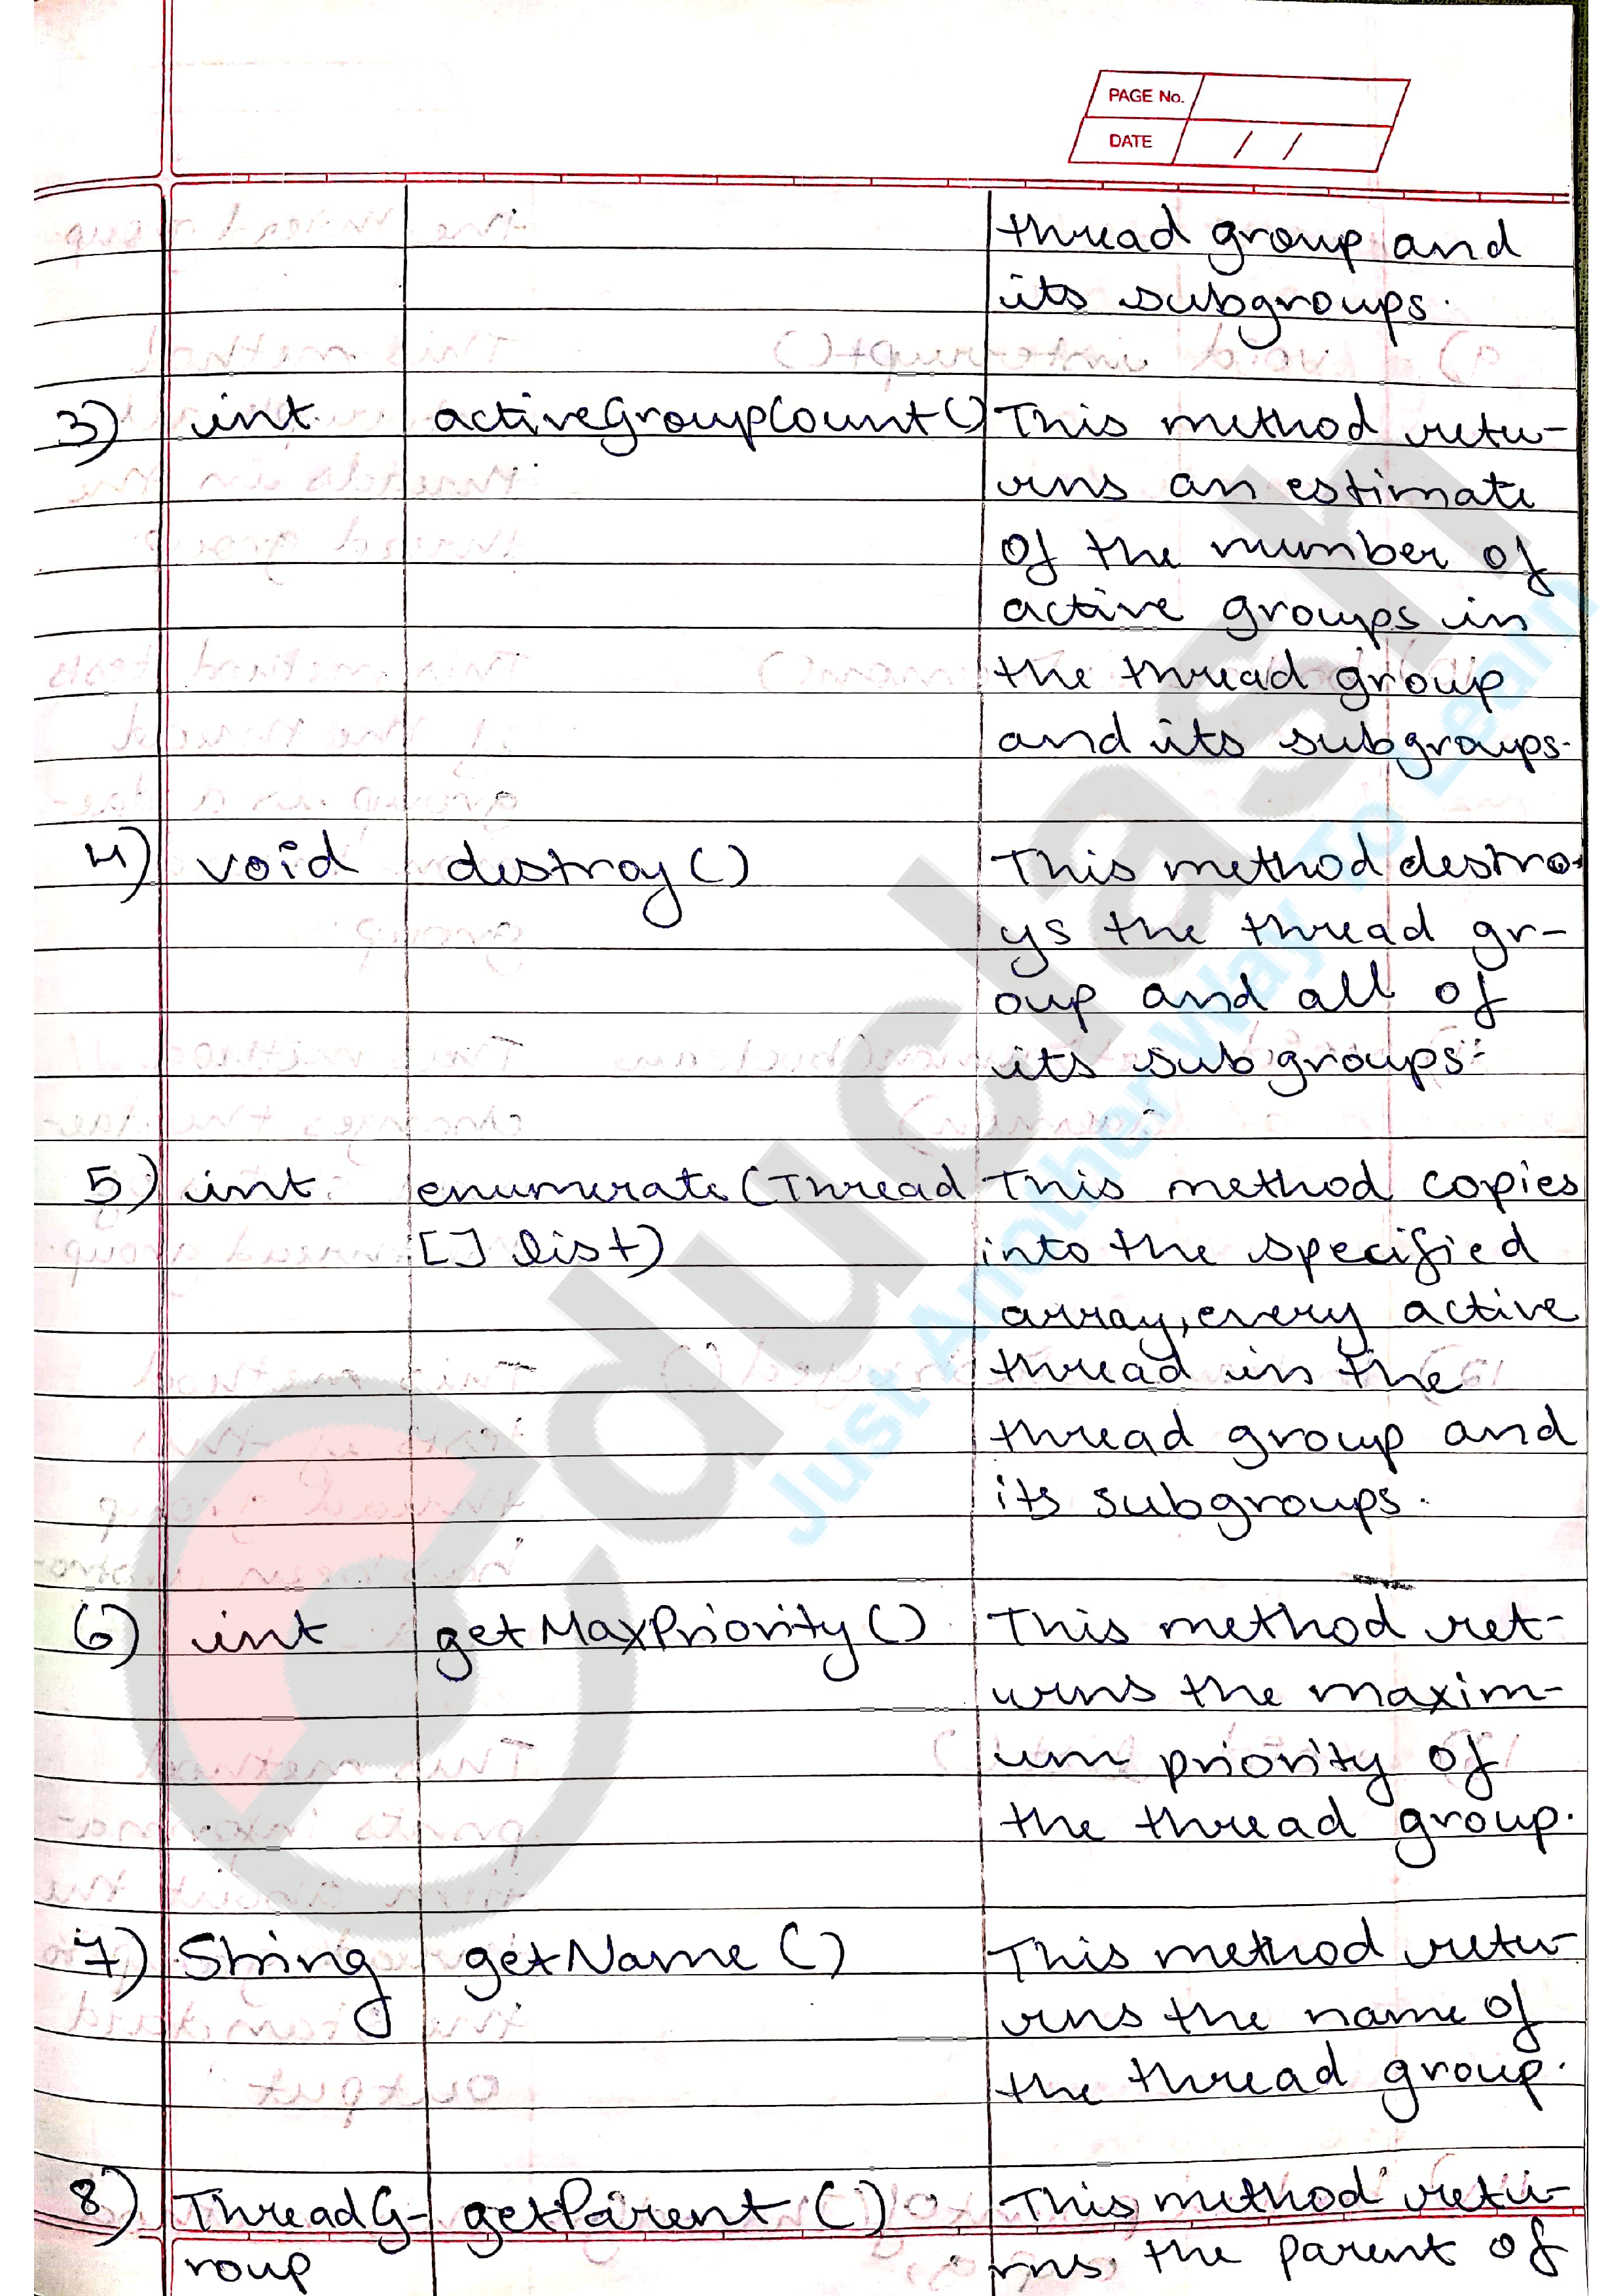 PAGE No.
DATE / /
thread group and
its subgroups.
3) int activeGroupCount() This method retu-
rns an estimate
of the number of
active groups in
the thread group
and its subgroups.
4) void destroy() This method destro-
ys the thread gr-
oup and all of
its subgroups.
5) int enumerate(Thread This method copies
[] list) into the specified
array, every active
thread in the
thread group and
its subgroups.
6) int getMaxPriority() This method ret-
urns the maxim-
um priority of
the thread group.
7) String getName() This method retu-
rns the name of
the thread group.
8) ThreadG- getParent() This method retu-
roup rns the parent of
educlash
Just Another Way To Learn